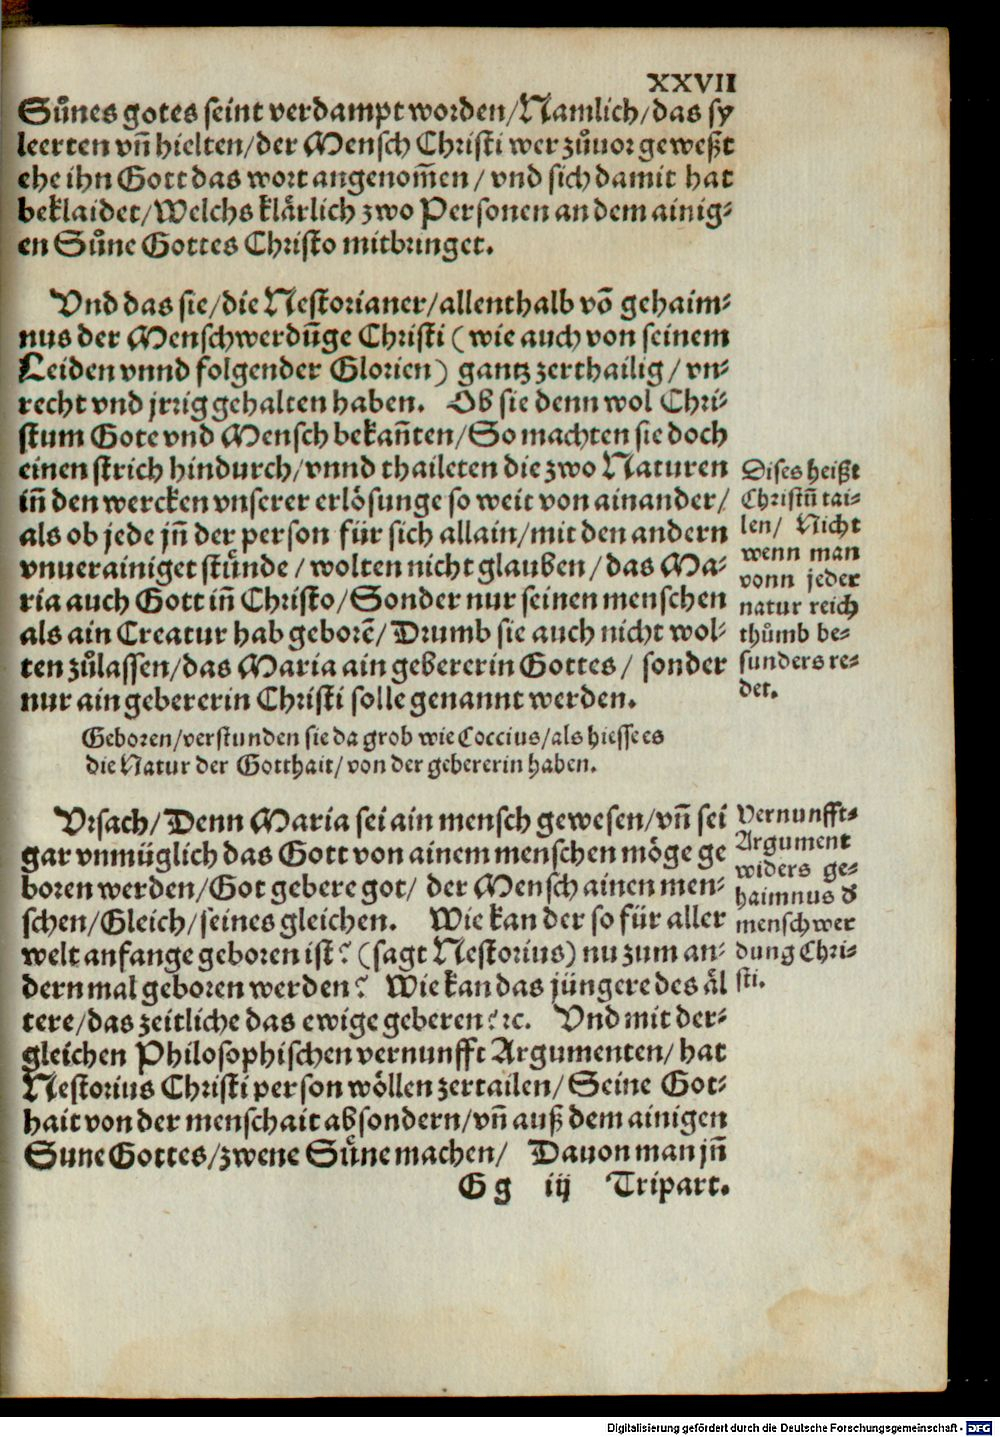 XXVII
Sůnes gotes seint verdampt worden/Namlich/das sy
leerten vn̄ hielten/der Mensch Christi wer zůuor geweßt
ehe ihn Gott das wort angenom̄en/ vnd sich damit hat
beklaidet/Welchs klärlich zwo Personen an dem ainig⸗
en Sůne Gottes Christo mitbringet.
Vnd das sie/die Nestorianer/allenthalb vō gehaim⸗
nus der Menschwerdūge Christi (wie auch von seinem
Leiden vnnd folgender Glorien) gantz zerthailig/ vn⸗
recht vnd jrrig gehalten haben. Ob sie denn wol Chri⸗
stum Gote vnd Mensch bekan̄ten/So machten sie doch
einen strich hindurch/vnnd thaileten die zwo Naturen
in̄ den wercken vnserer erlösunge so weit von ainander/
als ob jede jn̄ der person für sich allain/mit den andern
vnuerainiget stůnde/ wolten nicht glauben/das Ma⸗
ria auch Gott in̄ Christo/Sonder nur seinen menschen
als ain Creatur hab geborē/Drumb sie auch nicht wol⸗
ten zůlassen/das Maria ain gebererin Gottes/ sonder
nur ain gebererin Christi solle genannt werden.
Dises heißt
Christū tai⸗
len/ Nicht
wenn man
vonn jeder
natur reich
thůmb be⸗
sunders re⸗
det.
Geboren/verstunden sie da grob wie Coccius/als hiesse es
die Natur der Gotthait/von der gebererin haben.
Vrsach/Denn Maria sei ain mensch gewesen/vn̄ sei
gar vnmüglich das Gott von ainem menschen möge ge
boren werden/Got gebere got/ der Mensch ainen men⸗
schen/Gleich/seines gleichen. Wie kan der so für aller
welt anfange geboren ist? (sagt Nestorius) nu zum an⸗
dern mal geboren werden? Wie kan das jüngere des äl
tere/das zeitliche das ewige geberen? ꝛc. Vnd mit der⸗
gleichen Philosophischen vernunfft Argumenten/ hat
Nestorius Christi person wöllen zertailen/Seine Got⸗
hait von der menschait absondern/vn̄ auß dem ainigen
Sune Gottes/zwene Sůne machen/ Dauon man jn̄
Vernunfft⸗
Argument
widers ge⸗
haimnus d̕
menschwer
dung Chri⸗
sti.
G g iij Tripart.
Digitalisierung gefördert durch die Deutsche Forschungsgemeinschaft - DFG